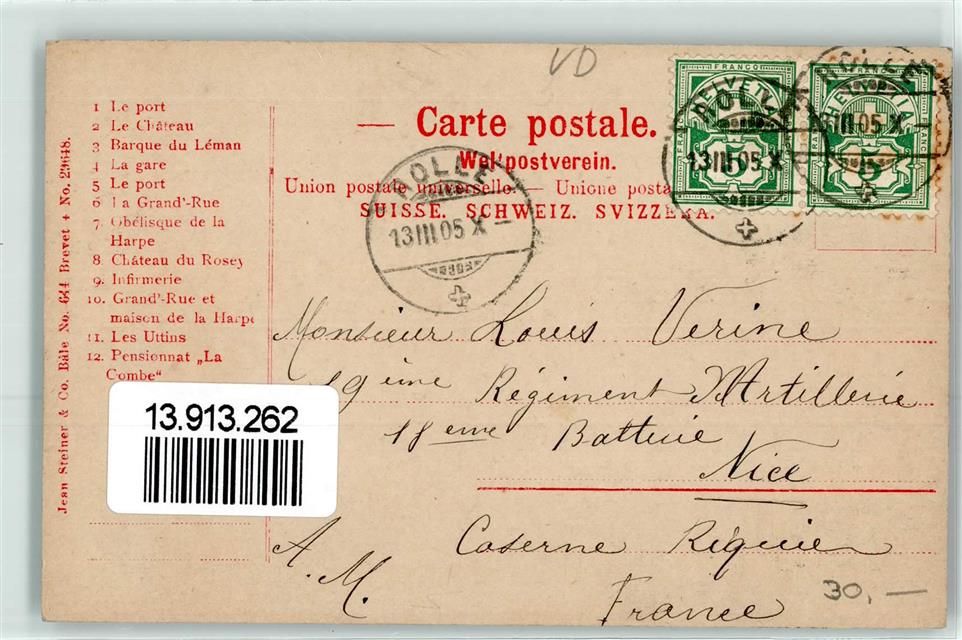 VD
1 Le port
2 Le Château
3 Barque du Léman
4 La gare
5 Le port
6 La Grand'-Rue
7. Obélisque de la
Harpe
8. Château du Rosey
9. Infirmerie
10. Grand'-Rue et
maison de la Harpe
11. Les Uttins
12. Pensionnat „La
Combe"
Jean Steiner & Co. Bâle No. 634 Brevet + No. 29648.
— Carte postale.
Weltpostverein.
Union postale universelle. — Unione posta
SUISSE. SCHWEIZ. SVIZZERA.
FRANCO
HELVETIA
5
FRANCO
HELVETIA
5
ROLLE
13 III 05 X
ROLLE
III 05 X
ROLLE
13 III 05 X –
Monsieur Louis Verine
19ème Régiment d'Artillerie
18eme Batterie
Nice
Caserne Riquier
France
A. M.
13.913.262
30,—